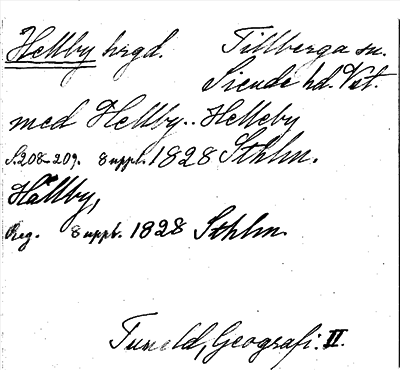 Hellby hrgd. Tillberga sn.
Siende hd. Vst.
med Hellby - Helleby
S. 208-209. 8 uppl. 1828 Sthlm.
Hällby,
Reg. 8 uppl. 1828 Sthlm.
Tuneld, Geografi. II.